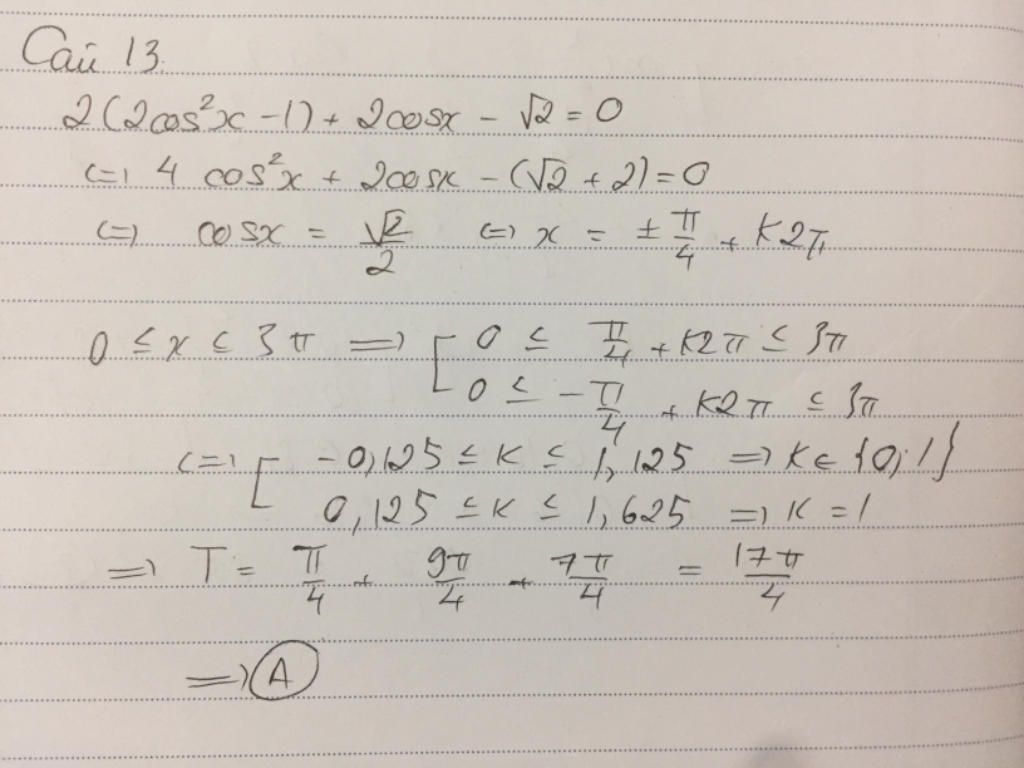 Câu 13.
2(2cos²x - 1) + 2cosx - √2 = 0
(=) 4 cos²x + 2cosx - (√2 + 2) = 0
(=) cosx = √2/2 (=) x = ± π/4 + K2π
0 ≤ x ≤ 3π => [ 0 ≤ π/4 + K2π ≤ 3π
0 ≤ -π/4 + K2π ≤ 3π
(=) [ -0,125 ≤ K ≤ 1,125 => K ∈ {0;1}
0,125 ≤ K ≤ 1,625 => K = 1
=> T = π/4 + 9π/4 + 7π/4 = 17π/4
=> A